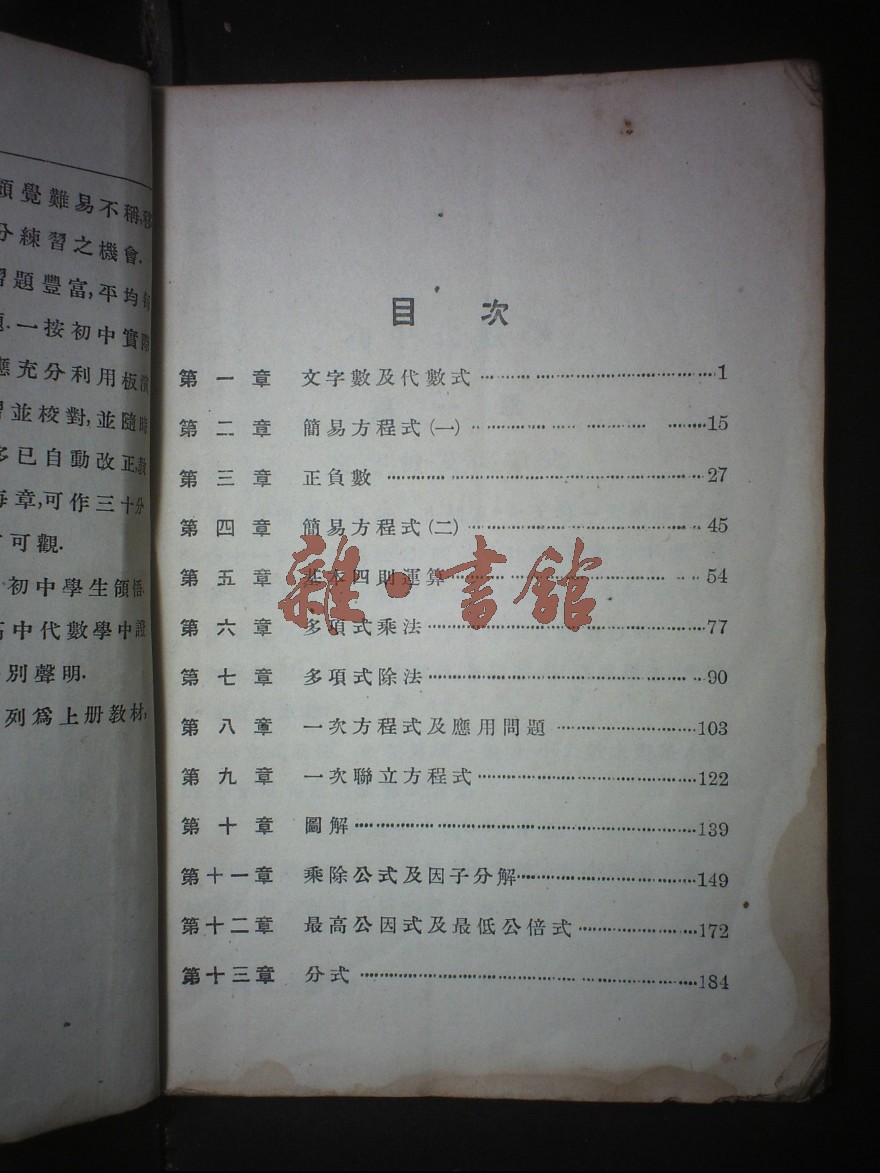 覺難易不稱,
分練習之機會.
習題豐富,平均
一按初中實際
應充分利用板演
習並校對,並隨時
多已自動改正,教
每章,可作三十分
可觀.
初中學生領悟.
高中代數學中證
別聲明.
列爲上册教材,
目 次
第一章 文字數及代數式 1
第二章 簡易方程式(一) 15
第三章 正負數 27
第四章 簡易方程式(二) 45
第五章 基本四則運算 54
第六章 多項式乘法 77
第七章 多項式除法 90
第八章 一次方程式及應用問題 103
第九章 一次聯立方程式 122
第十章 圖解 139
第十一章 乘除公式及因子分解 149
第十二章 最高公因式及最低公倍式 172
第十三章 分式 184
雜·書館